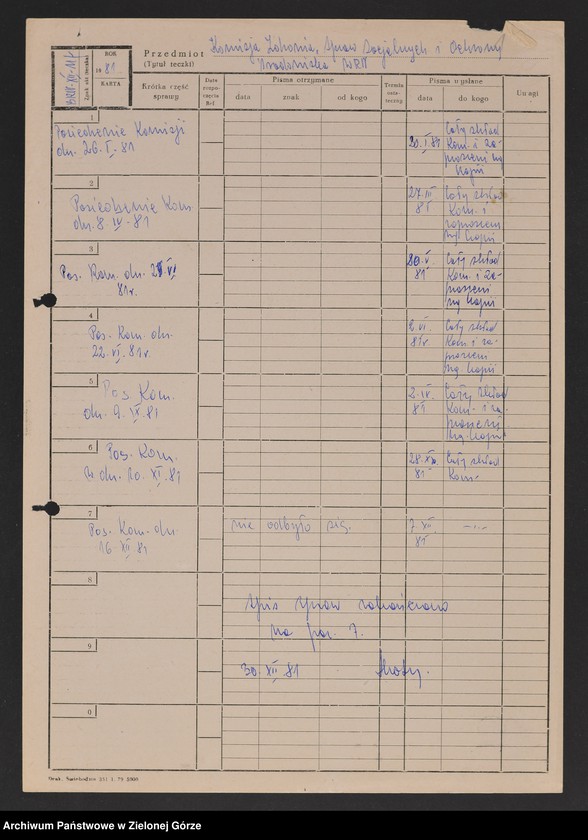 Przedmiot Komisja Zdrowia, Spraw Socjalnych i Ochrony
(Tytuł teczki) Środowiska WRN
Znak akt (teczka)
ROK
19 81
KARTA
Krótka część
sprawy
Data
rozpo-
częcia
Ref.
Pisma otrzymane
data znak od kogo
Termin
osta-
teczny
Pisma wysłane
data do kogo
Uwagi
1
Posiedzenie Komisji
dn. 26.I.81
20.I.81
Cały skład
Kom. i za-
proszeni wg
kopii
2
Posiedzenie Kom.
dn. 8 IV 81
27.III
81
Cały skład
Kom. i
zaproszeni
wg kopii
3
Pos. Kom. dn.
81r.
81
Cały skład
Kom. i za-
proszeni
wg kopii
4
Pos. Kom. dn.
22.VI.81r.
VI.
81r
Cały skład
Kom. i za-
proszeni
wg. kopii
5
Pos. Kom.
dn. 9. IX.81
81
Cały skład
Kom. i za-
proszeni
wg. kopii
6
Pos. Kom.
w dn. 10. XI.81
28.
81
Cały skład
Kom.
7
Pos. Kom. dn.
16 XII 81
nie odbyło się.
7 XII
81
-„-
8
Spis spraw zakończono
na poz. 7.
9
30. XII 81
0
Druk. Świebodzin 251 1.79 5000
Archiwum Państwowe w Zielonej Górze